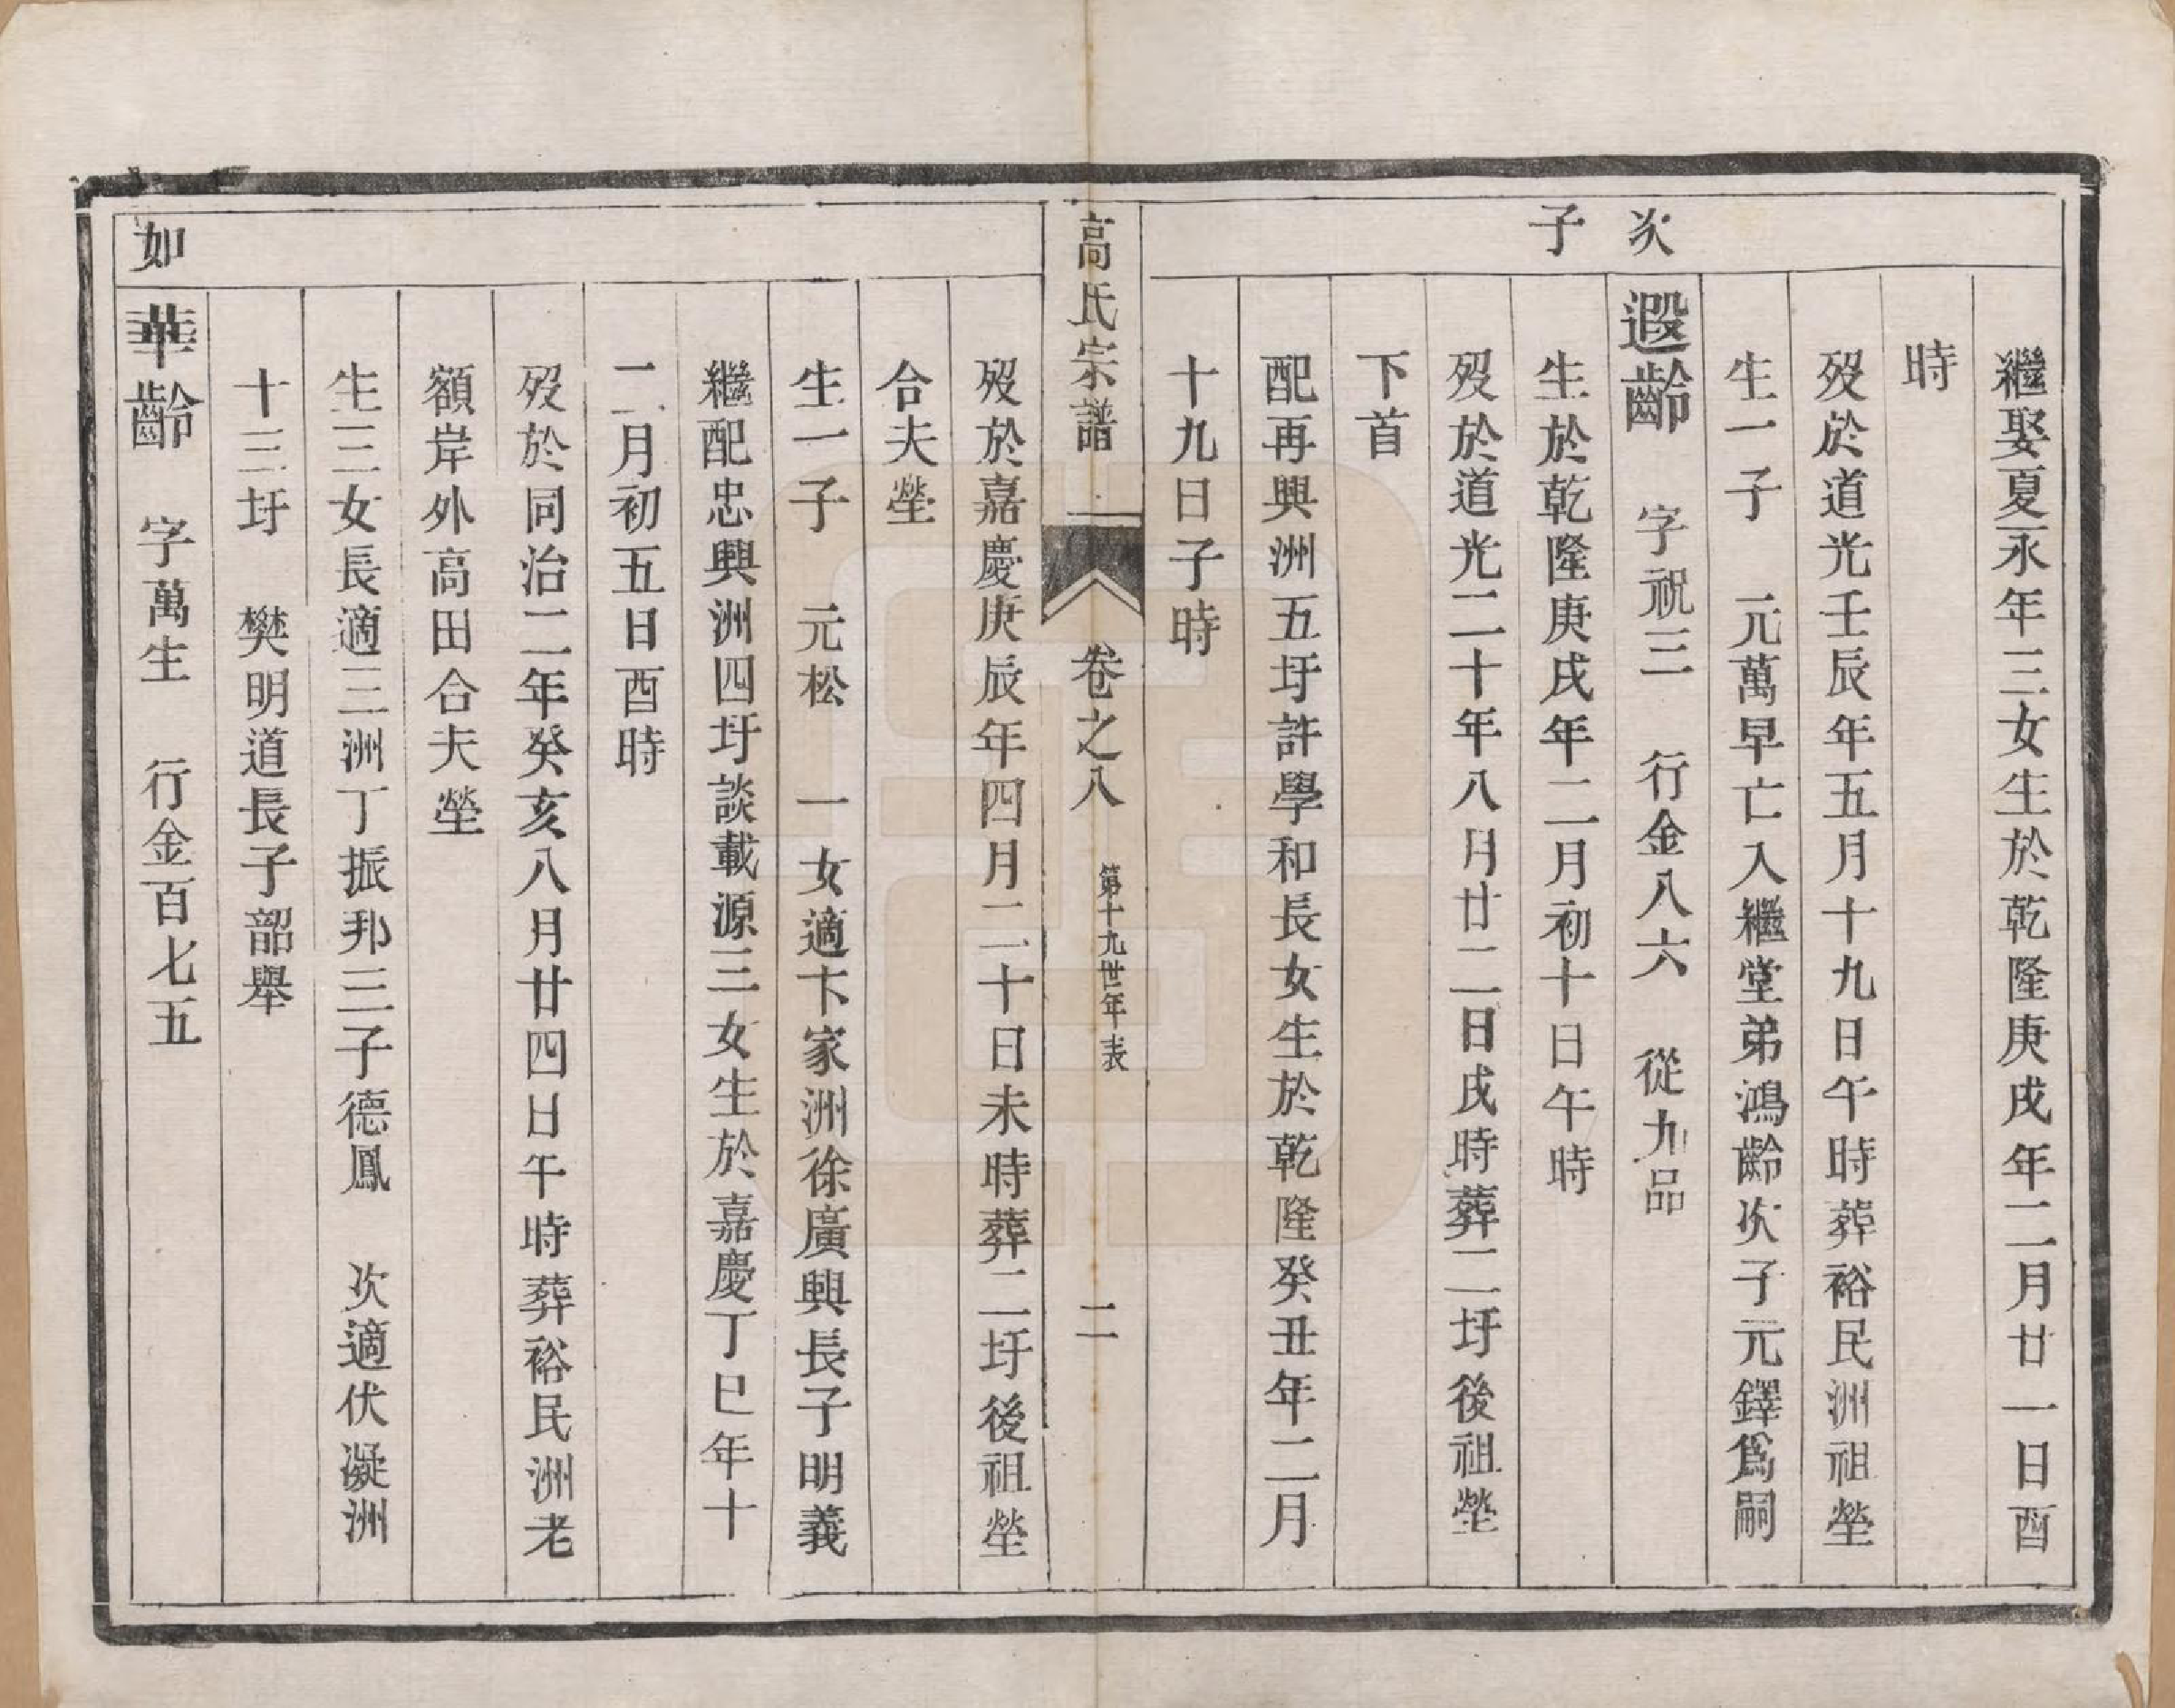 繼娶夏永年三女生於乾隆庚戌年二月廿一日酉
時
歿於道光壬辰年五月十九日午時葬裕民洲祖塋
生一子 元萬早亡入繼堂弟鴻齡次子元鐸爲嗣
次子
遐齡 字祝三 行金八六 從九品
生於乾隆庚戌年二月初十日午時
歿於道光二十年八月廿二日戌時葬二圩後祖塋
下首
配再興洲五圩許學和長女生於乾隆癸丑年二月
十九日子時
高氏宗譜 卷之八 第十九世年表 二
歿於嘉慶庚辰年四月二十日未時葬二圩後祖塋
合夫塋
生一子 元松 一女適卞家洲徐廣興長子明義
繼配忠興洲四圩談載源三女生於嘉慶丁巳年十
二月初五日酉時
歿於同治二年癸亥八月廿四日午時葬裕民洲老
額岸外高田合夫塋
生三女長適三洲丁振邦三子德鳳 次適伏凝洲
十三圩 樊明道長子韶舉
如
華齡 字萬生 行金百七五